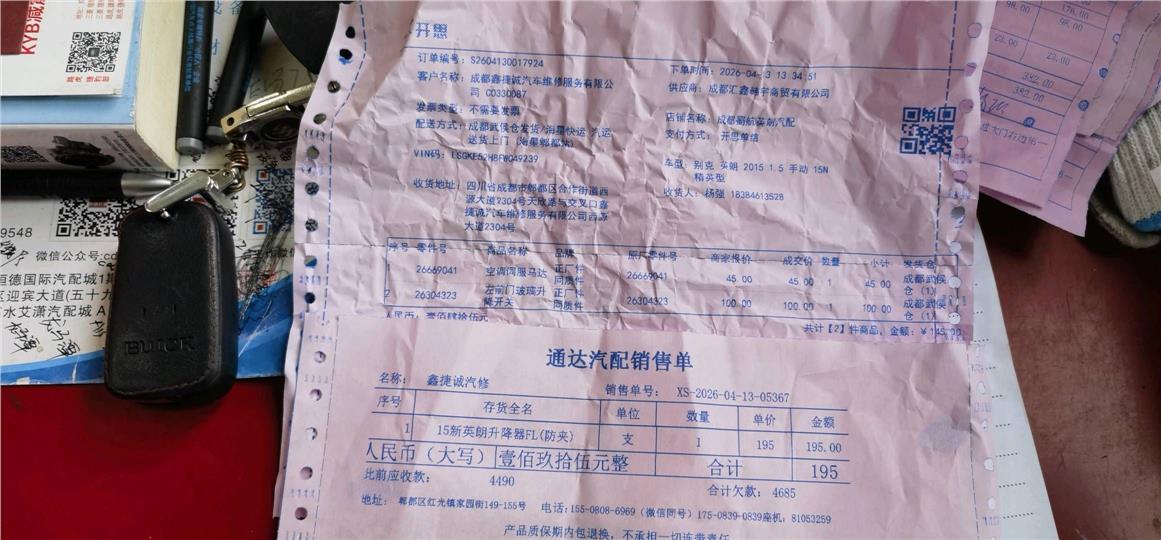 KYB减
9548
微信公众号:
恒德国际汽配城1期
区迎宾大道(五十
水艾潇汽配城 A
BUICK
开思
订单编号: S2604130017924
下单时间: 2026-04- 3 13:34:51
客户名称: 成都鑫捷诚汽车维修服务有限公
司 C0330087
供应商: 成都汇鑫韩宇商贸有限公司
发票类型: 不需要发票
店铺名称: 成都蜀航英朗汽配
配送方式: 成都武侯仓发货/海星快运 汽运
送货上门 (海星郫都线)
支付方式: 开思单结
VIN码: LSGKE52H8FW049239
车型: 别克 英朗 2015 1.5 手动 15N
精英型
收货地址: 四川省成都市郫都区合作街道西
源大道2304号天欣路与交叉口鑫
捷诚汽车维修服务有限公司西源
大道2304号
收货人: 杨强 18384613528
序号 零件号 商品名称 品牌 原厂零件号 商家报价 成交价 数量 小计 发货仓
1 26669041 空调伺服马达 正厂件 同质件 26669041 45.00 45.00 1 45.00 成都武侯仓 (1)
2 26304323 左前门玻璃升降开关 正厂件 同质件 26304323 100.00 100.00 1 100.00 成都武侯仓 (1)
人民币: 壹佰肆拾伍元
共计【2】件商品, 金额: ¥145.00
通达汽配销售单
名称: 鑫捷诚汽修
销售单号: XS-2026-04-13-05367
序号 存货全名 单位 数量 单价 金额
1 15新英朗升降器FL(防夹) 支 1 195 195.00
人民币（大写） 壹佰玖拾伍元整 合计 195
此前应收款: 4490
合计欠款: 4685
地址: 郫都区红光镇家园街149-155号 电话: 155-0808-6969 (微信同号) 175-0839-0839座机: 81053259
产品质保期内包退换, 不承担一切连带责任
98.00
178.00
98.00
23.00
23.00
382.00
382.00